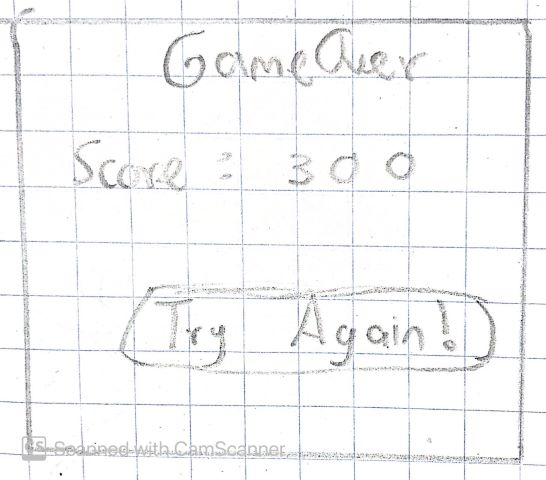 Game Over
Score : 300
Try Again!
CS Scanned with CamScanner